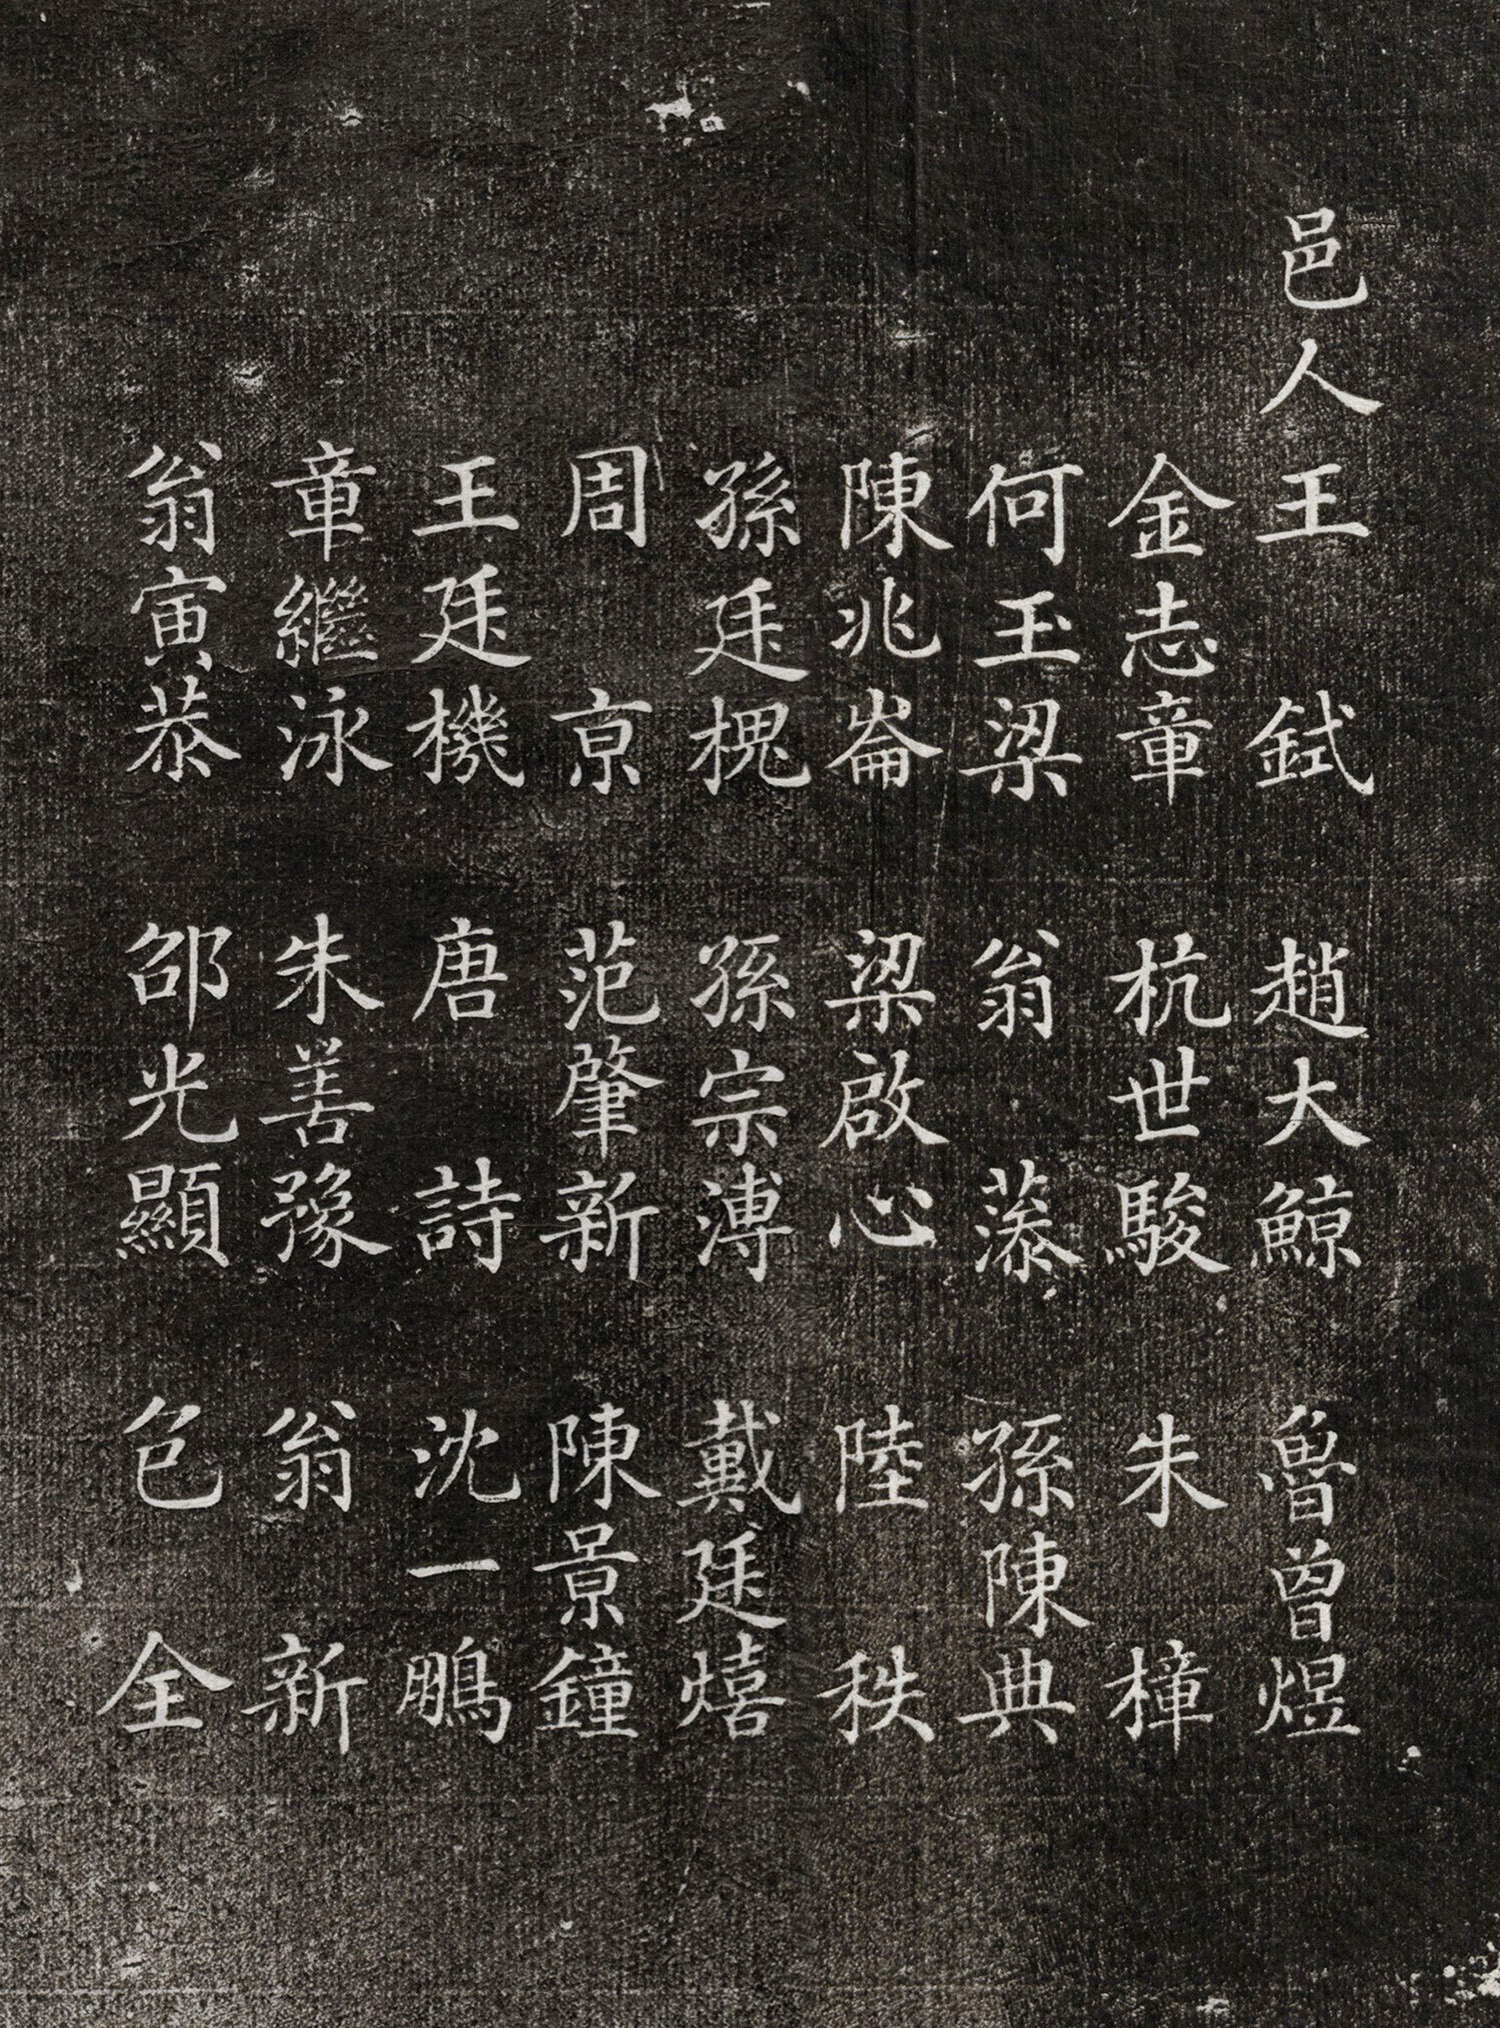 邑人王鉽　趙大鯨　魯曾煜
金志章　杭世駿　朱樟
何玉梁　翁藻　孫陳典
陳兆崙　梁啟心　陸秩
孫廷槐　孫宗溥　戴廷熺
周京　范肇新　陳景鐘
王廷機　唐詩　沈一鵬
章繼泳　朱善豫　翁新
翁寅恭　邵光顯　包全